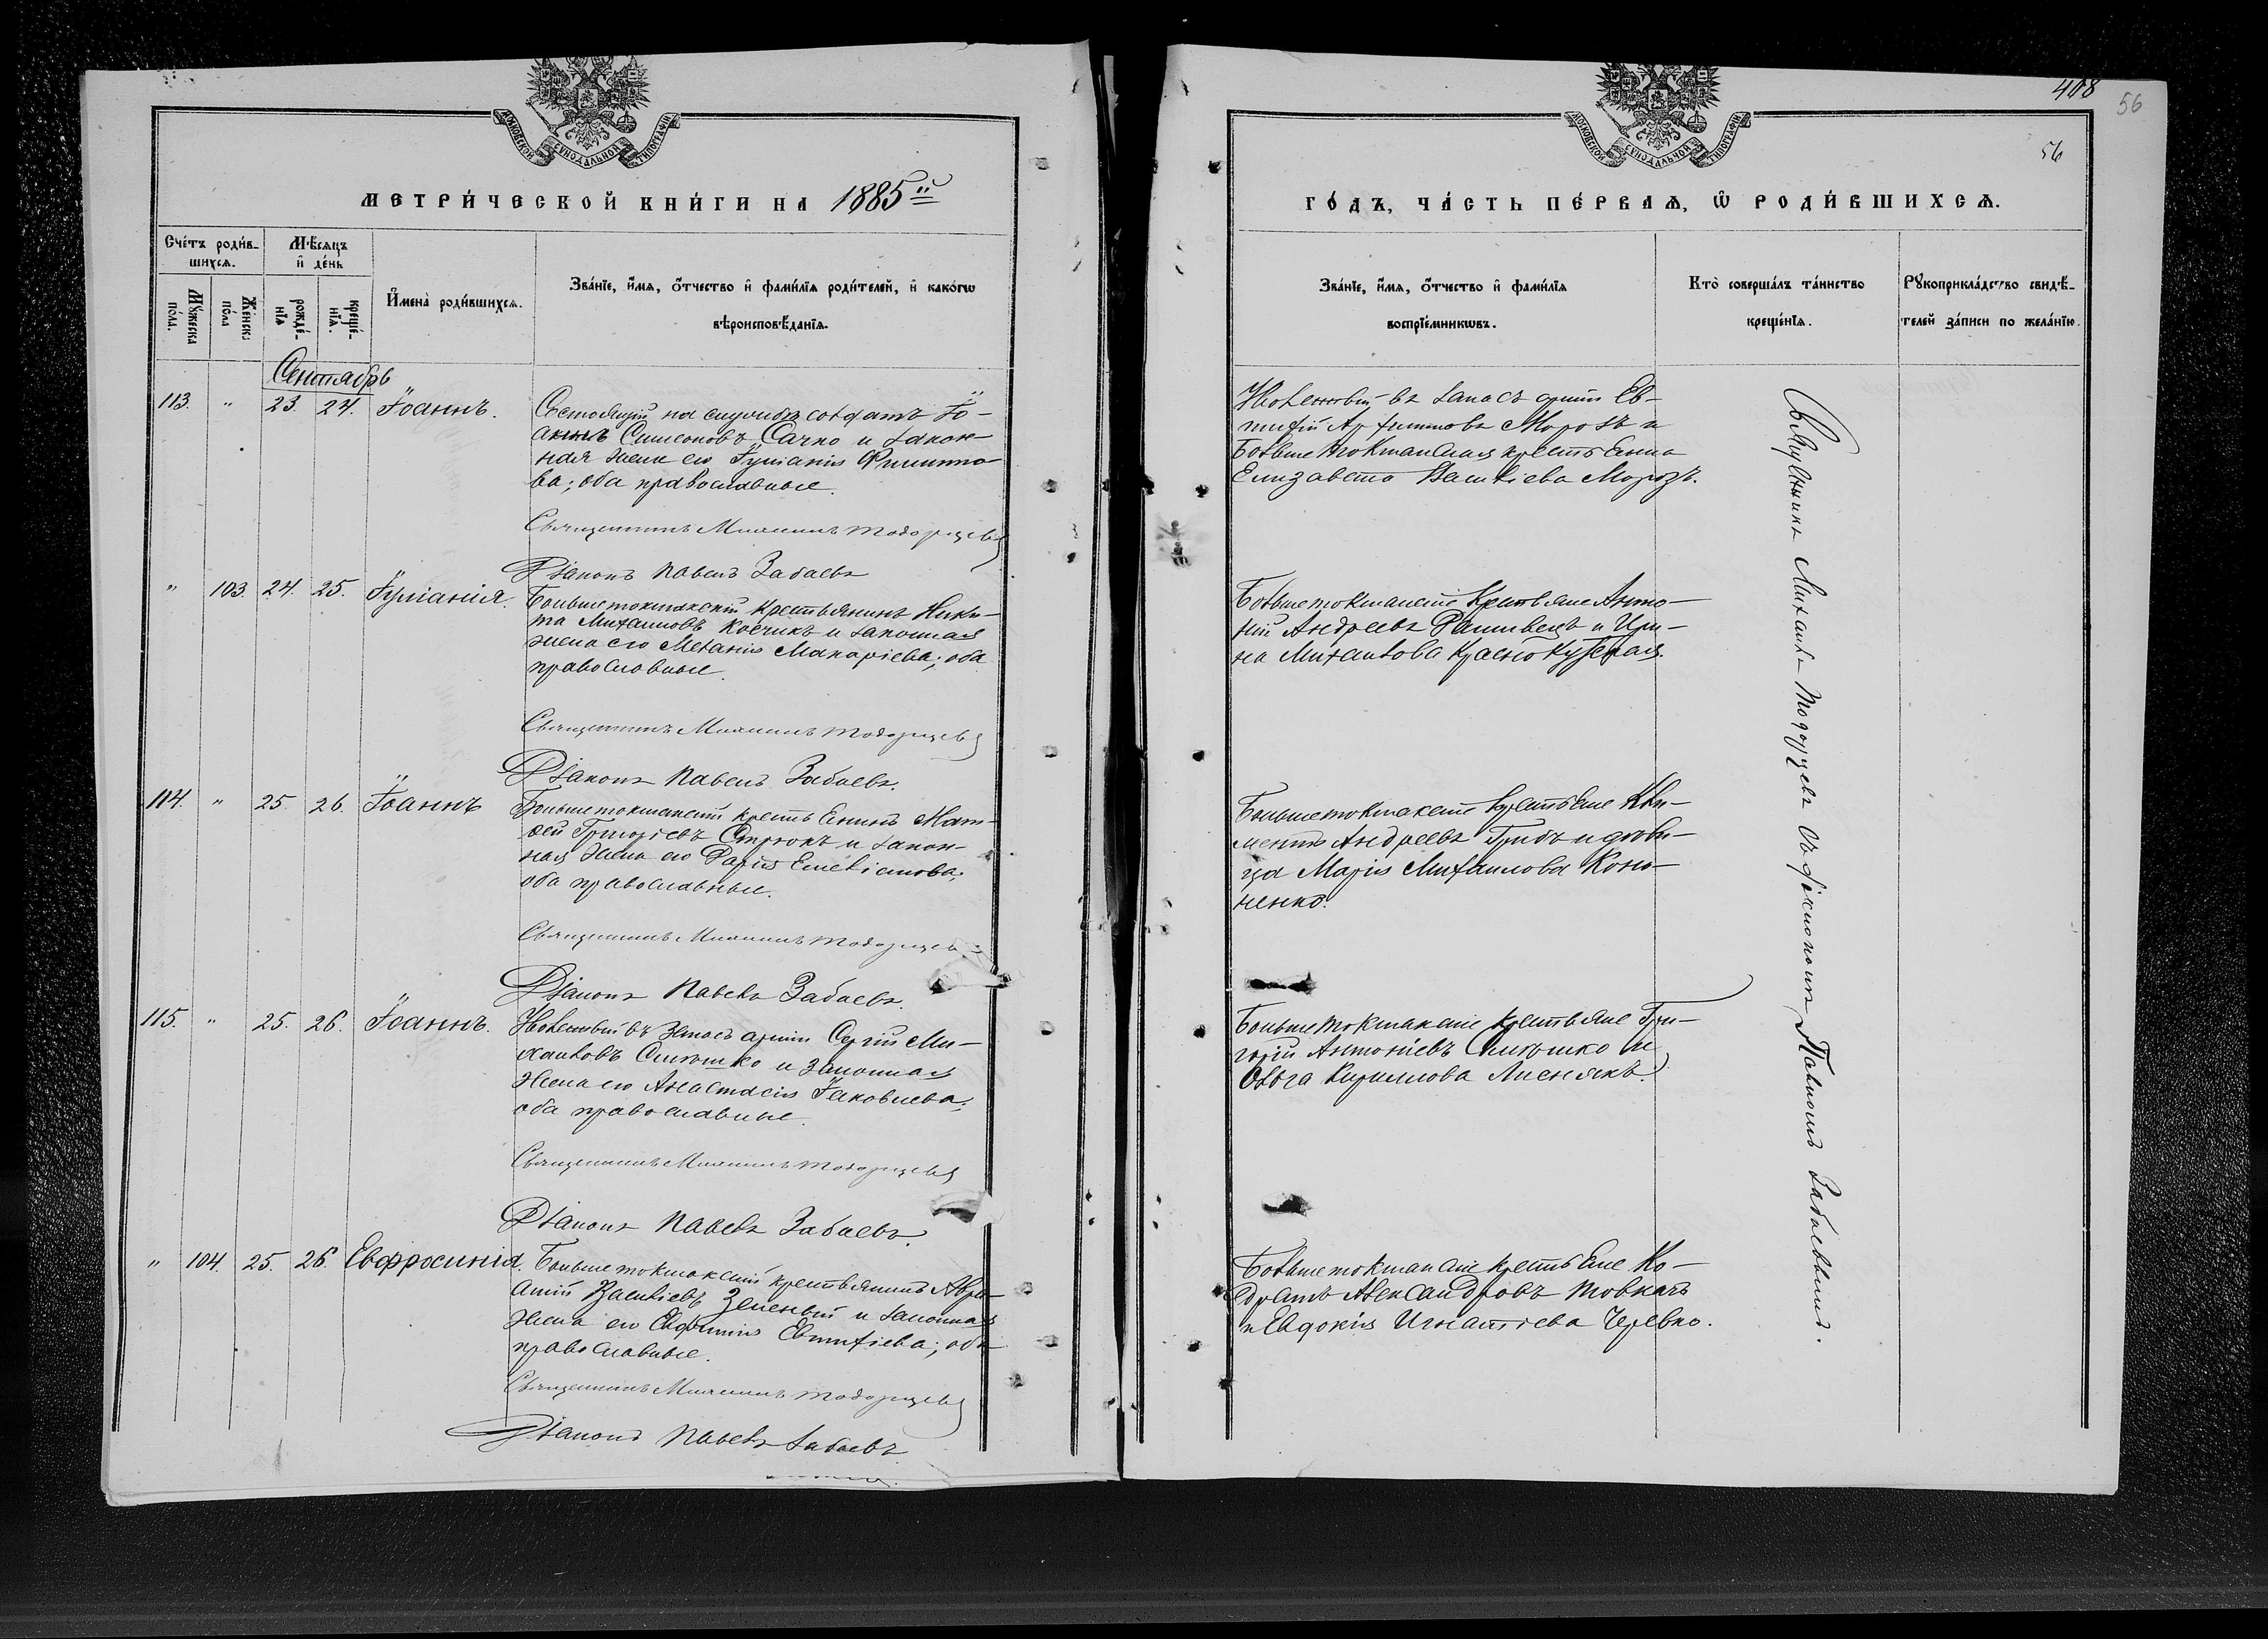 408
56
56
МОСКОВСКОЙ СѴНОДАЛЬНОЙ ТИПОГРАФІИ
МЕТРИ́ЧЕСКОЙ КНИ́ГИ НА 1885й
Сче́тъ роди́в-
шихся.
Мѣ́сяцъ
и҆ де́нь
Мꙋ́жеска по́ла.
Же́нска по́ла
рожде́-
нїѧ
креще́-
нїѧ.
И҆мена̀ роди́вшихсѧ.
Зва́нїе, и҆́мѧ, ѻ҆́тчество и҆ фами́лїѧ роди́телей, и҆ како́гѡ
вѣроисповѣ́данїѧ.
Сентябрь
113. " 23. 24. Іоаннъ.
Состоящій на службѣ солдатъ Іо-
аннъ Симеоновъ Сачко и закон-
ная жена его Іуліанія Филиппо-
ва; оба православные.
Священникъ Михаилъ Тодорцевъ
Діаконъ Павелъ Забаевъ
" 103. 24. 25. Іуліанія.
Большетокмакскій крестьянинъ Ники-
та Михаиловъ Косчикъ и законная
жена его Меланія Макаріева; оба
православные.
Священникъ Михаилъ Тодорцевъ
Діаконъ Павелъ Забаевъ.
114. " 25. 26. Іоаннъ
Большетокмакскій крестьянинъ Мат-
ѳей Григоріевъ Стрюкъ и закон-
ная жена его Дарія Емеліанова;
оба православные.
Священникъ Михаилъ Тодорцевъ
Діаконъ Павелъ Забаевъ.
115. " 25. 26. Іоаннъ.
Уволенный въ запасъ арміи Сергій Ми-
хаиловъ Слюшко и законная
жена его Анастасія Іаковлева;
оба православные.
Священникъ Михаилъ Тодорцевъ
Діаконъ Павелъ Забаевъ.
" 104. 25. 26. Евфросинія.
Большетокмакскій крестьянинъ
Василіевъ Зеленый и законная
жена его Евфимія Евтихіева; оба
православные.
Священникъ Михаилъ Тодорцевъ
Діаконъ Павелъ Забаевъ
МОСКОВСКОЙ СѴНОДАЛЬНОЙ ТИПОГРАФІИ
ГО́ДЪ, ЧА́СТЬ ПЕ́РВАѦ, Ѽ РОДИ́ВШИХСѦ.
Зва́нїе, и҆́мѧ, ѻ҆́тчество и҆ фами́лїѧ
воспрїе́мникѡвъ.
Кто̀ соверша́лъ та́инство
креще́нїѧ.
Рꙋкоприкла́дство свидѣ́-
телей за́писи по жела́нїю.
Уволенный въ запасъ арміи Ев-
тихій Морозъ и
Большетокмакская крестьянка
Елизавета Василіева Морозъ.
Большетокмакскіе крестьяне Анто-
ній Андреевъ и Ири-
на Михаилова Краснокутская.
Большетокмакскіе крестьяне Кли-
ментъ Андреевъ Грибъ и дѣви-
ца Марія Михаилова Коно-
ненко.
Большетокмакскіе крестьяне Гри-
горій Антоніевъ Слюшко и
Ольга Кириллова Лиснякъ.
Большетокмакскіе крестьяне Ко-
дратъ Александровъ Товкачъ
и Евдокія Игнатіева Черевко.
Священникъ Михаилъ Тодорцевъ съ діакономъ Павломъ Забаевымъ.